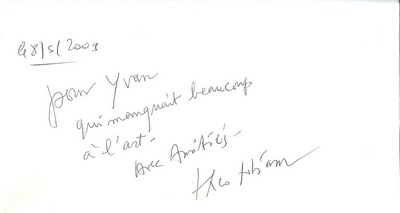 le 8/5/2009
pour Yvan
qui manquait beaucoup
à l'art-
Avec Amitiés-